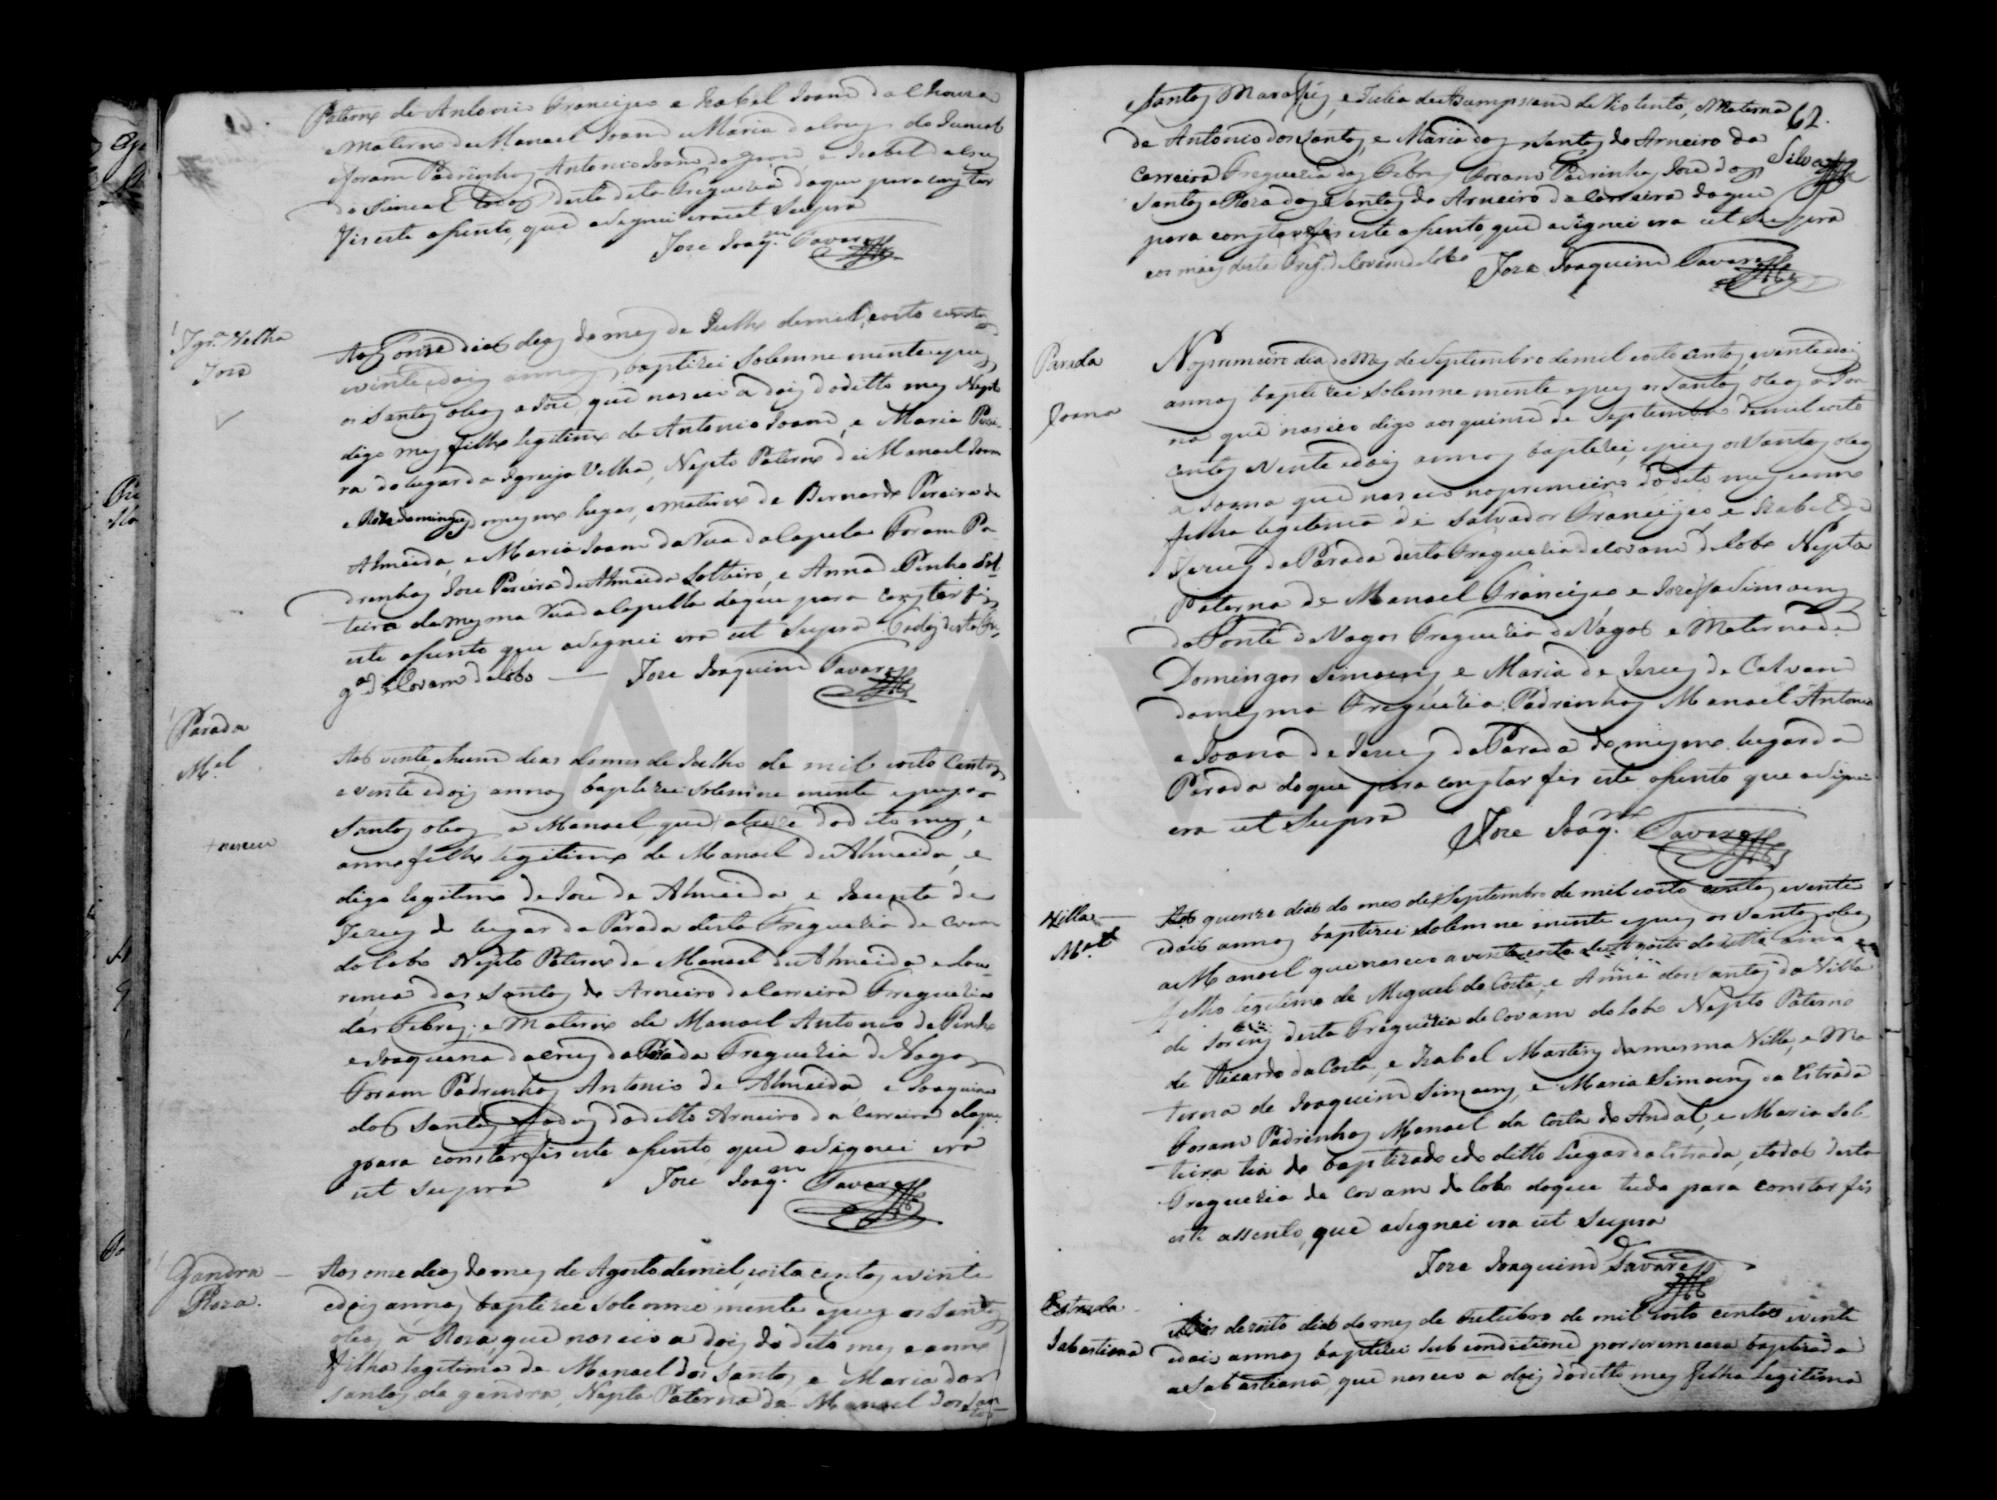 Paterno de Antonio Francisco e Izabel Joam da Chouza
e Materno de Manoel Joam e Maria da Cruz do Juncal
foram Padrinhos Antonio Joam da e Izabel da Cruz
do Juncal todos desta dita Freguezia doque para constar
fis este asento, que asignei era ut supra
Joze Joaq.m Tavares
Igr.a Velha
Joze
Aos onze dias do mes de Julho de mil, oito centos
e vinte, e dois annos, baptizei solemne mente e pus
os santos oleos a Joze, que nasceo a dois do ditto mes Nepto
digo mes filho legitimo de Antonio Joam, e Maria Perei
ra do lugar da Igreija Velha, Nepto Paterno de Manoel Joam
e Roza Domingues do mesmo lugar, e materno de Bernardo Pereira de
Almeida, e Maria Joam da Rua da Capela Foram Pa
drinhos Joze Pereira de Almeida Solteiro, e Anna de Pinho Sol
teira da mesma Rua da Capella doque para constar fis
este asento que asignei era ut supra Todos desta Fre
g.a de Covam do Lobo — Joze Joaquim Tavares
Parada
M.el
+ nasceo
Aos vinte e hum dias do mes de Julho de mil oito centos
e vinte e dois annos baptizei solemne mente e pus os
santos oleos a Manoel, que + a do dito mes, e
anno filho legitimo de Manoel de Almeida, e
digo legitimo de Joze de Almeida, e Jacinta de
Jezus do lugar da Parada desta Freguezia de Covam
do Lobo Nepto Paterno de Manoel de Almeida e Lou
renca dos Santos do Arneiro da Carreira Freguezia
das Febres; e Materno de Manoel Antonio de Pinho
e Joaquina da Cruz da Parada Freguezia de Vagos
Foram Padrinhos Antonio de Almeida, e Joaquina
dos Santos Todos do ditto Arneiro da Carreira doque
para constar fis este asento que asignei era
ut supra Joze Joaq.m Tavares
Gandra —
Roza.
Aos onze dias do mes de Agosto de mil, oito centos e vinte
e dois annos, baptizei solemne mente e pus os santos
oleos a Roza, que nasceo a dois do dito mes e anno
filha legitima de Manoel dos Santos, e Maria dos
Santos da gandra, Nepta Paterna de Manoel dos San
tos
62.
Silva
Santos e Julia de Asumpssam de Rio tinto, e Materna
de Antonio dos Santos, e Maria dos Santos do Arneiro da
Carreira Freguezia das Febres Foram Padrinhos Joze dos
Santos e Roza dos Santos do Arneiro da Carreira doque
para constar fis este asento, que asignei era ut supra
os mais desta Freg.a de Covam do Lobo Joze Joaquim Tavares
Parada
Joana
No primeiro dia do Mes de Septembro de mil oito centos, e vinte e dois
annos baptizei solemne mente e pus os Santos oleos a Joa
na que nasceo digo aos quinze de Septembro de mil oito
centos e vinte e dois annos baptizei, e pus os santos oleos
a Joana que nasceo no primeiro do dito mes e anno
filha legitima de Salvador Francisco, e Izabel de
Jezus da Parada desta Freguezia de Covam do Lobo Nepta
Paterna de Manoel Francisco e Jozefa Simoens
da Ponte de Vagos Freguezia de Vagos e Materna de
Domingos Simoens e Maria de Jezus de Calvam
da mesma Freguezia. Padrinhos Manoel Antonio
e Joana de Jezus da Parada do mesmo lugar da
Parada doque para constar fis este asento que asignei
era ut supra
Joze Joaq.m Tavares
Villa —
M.el
Aos quinze dias do mes de Septembro de mil oito centos e vinte
e dois annos baptizei solemne mente e pus os Santos oleos
a Manoel que nasceo a vinte oito de Agosto do ditto anno
filho legitimo de Miguel da Costa, e Anna dos Santos da Villa
de Sorens desta Freguezia de Covam do Lobo Nepto Paterno
de Ricardo da Costa, e Izabel Martins da mesma Villa, e Ma
terno de Joaquim Simoens, e Maria Simoens da Estrada
Foram Padrinhos Manoel da Costa do Andal, e Maria Sol
teira tia do baptizado e do ditto Lugar da Estrada, e todos desta
Freguezia de Covam do Lobo doque tudo para constar fis
este assento, que asignei era ut supra
Joze Joaquim Tavares
Estrada
Sabastiana
Aos dezoito dias do mes de Outubro de mil oito centos e vinte
e dois annos baptizei sub conditione por ser em caza baptizada
a Sabastiana, que nasceo a dois do ditto mes filha legitima
ADAVR